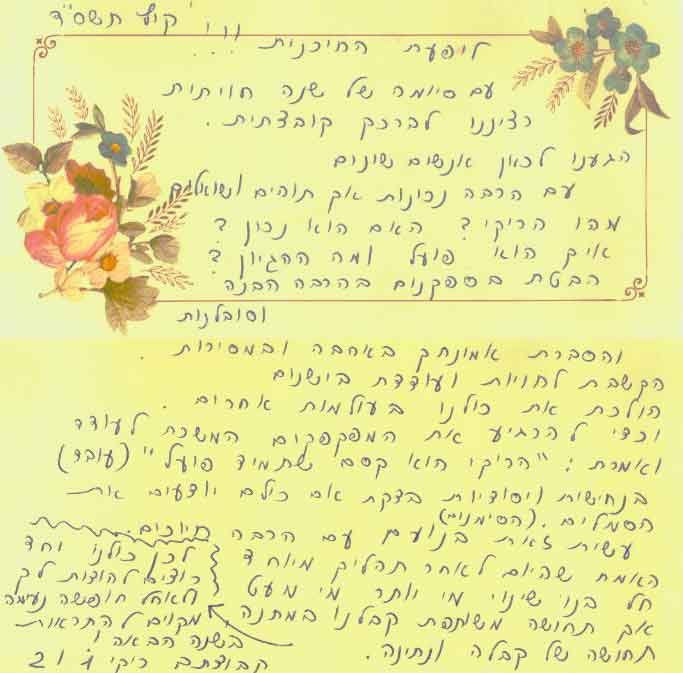 קיץ תשס"ד
ליפעת החיננית !!!
עם סיומה של שנה חוויתית
רצינו לברכך קובצתית.
הגענו לכאן אנשים שונים
עם הרבה נכונות אך תוהים ושואלים
מהו הריקי? האם הוא נכון?
איך הוא פועל ומה ההגיון?
הבטת בספקנים בהרבה הבנה
וסובלנות
והסברת אמונתך באהבה ובמסירות.
הקשבת לחויות ועודדת ביישנים
הולכת את כולנו בעולמות אחרים.
וכדי להרגיע את המפקפקים המשכת לעודד
ואמרת: "הריקי הוא קסם שתמיד פועל" (עובד)
בנחישות ויסודיות בדקת אם כולם יודעים את
הסמלים. (הסימנים)
עשית זאת בנועם עם הרבה חיוכים.
האמת שהיום לאחר תהליך מיוחד
חל בנו שינוי מי יותר מי מעט
אך תחושה משותפת קבלנו במתנה,
תחושה של קבלה ונתינה.
לכן כולנו יחד
רוצים להודות לך
ולאחל חופשה נעימה
מקוים להתראות
בשנה הבאה!
קבוצתם ריקי 1 ו 2